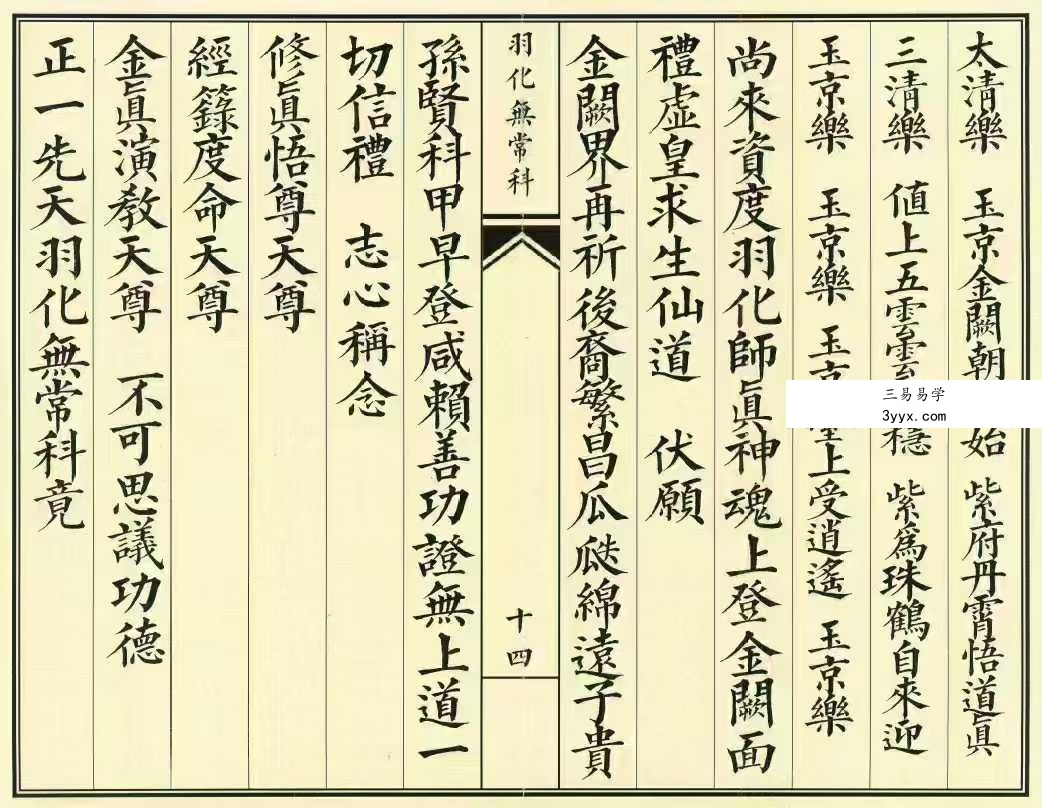 太清樂　玉京金闕朝　始　紫府丹霄悟道眞
三清樂　値上五雲雲　穩　紫爲珠鶴自來迎
玉京樂　玉京樂　玉京　上受逍遙　玉京樂
尚來資度羽化師眞神魂上登金闕面
禮虛皇求生仙道　伏願
金闕界再祈後裔繁昌瓜瓞綿遠子貴
羽化無常科
十四
孫賢科甲早登咸賴善功證無上道一
切信禮　志心稱念
修眞悟尊天尊
經籙度命天尊
金眞演教天尊　不可思議功德
正一先天羽化無常科竟
三易易学
3yyx.com